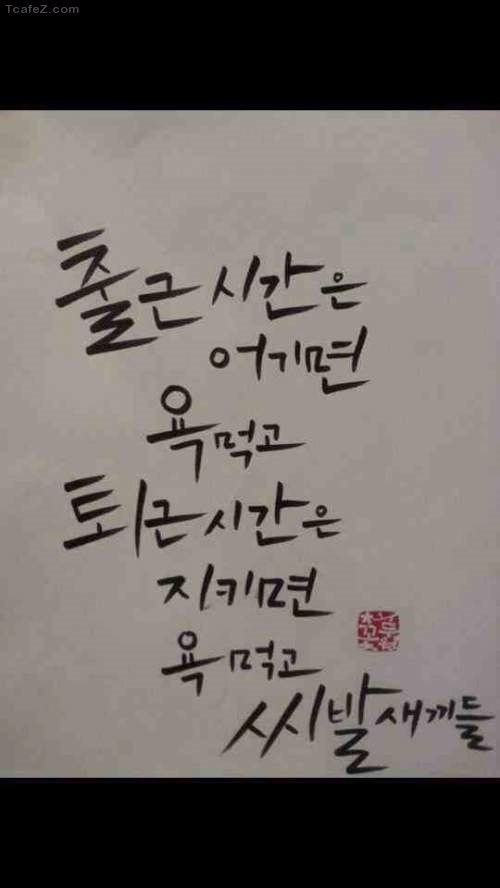 TcafeZ.com
출근시간은
어기면
욕먹고
퇴근시간은
지키면
욕먹고
씨발새끼들